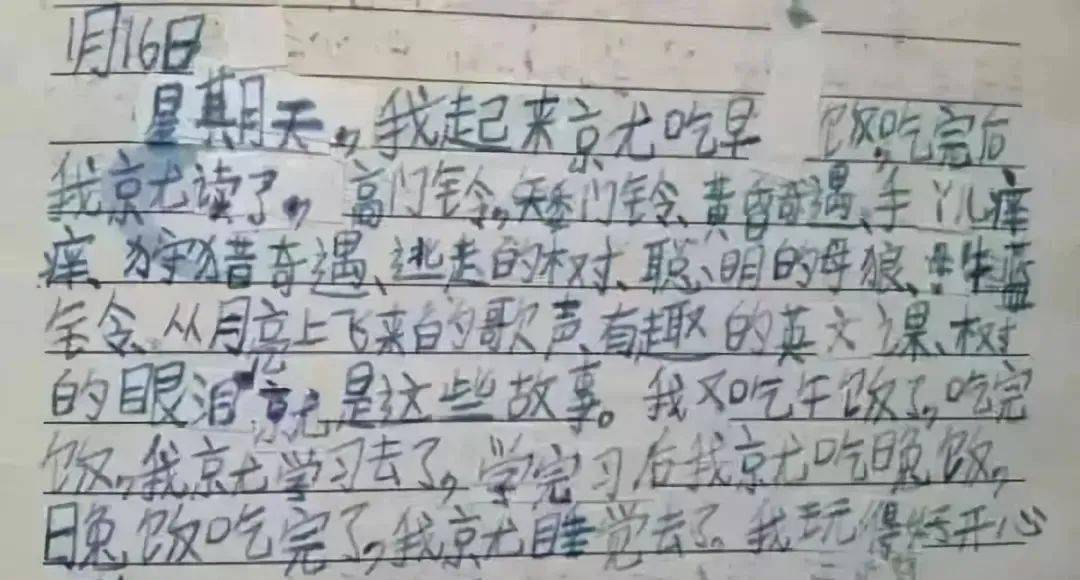 1月16日
星期天,我起来就吃早 饭,吃完后
我就读了,高门铃,矮门铃、黄昏奇遇、手丫儿痒
痒、狩猎奇遇、逃走的树、聪明的母狼、
铃、从月亮上飞来的歌声、有趣的英文课、树
的眼泪就是这些故事。我又吃午饭了,吃完
饭,我就学习去了,学完习后我就吃晚饭,
晚饭吃完了,我就睡觉去了。我玩得好开心